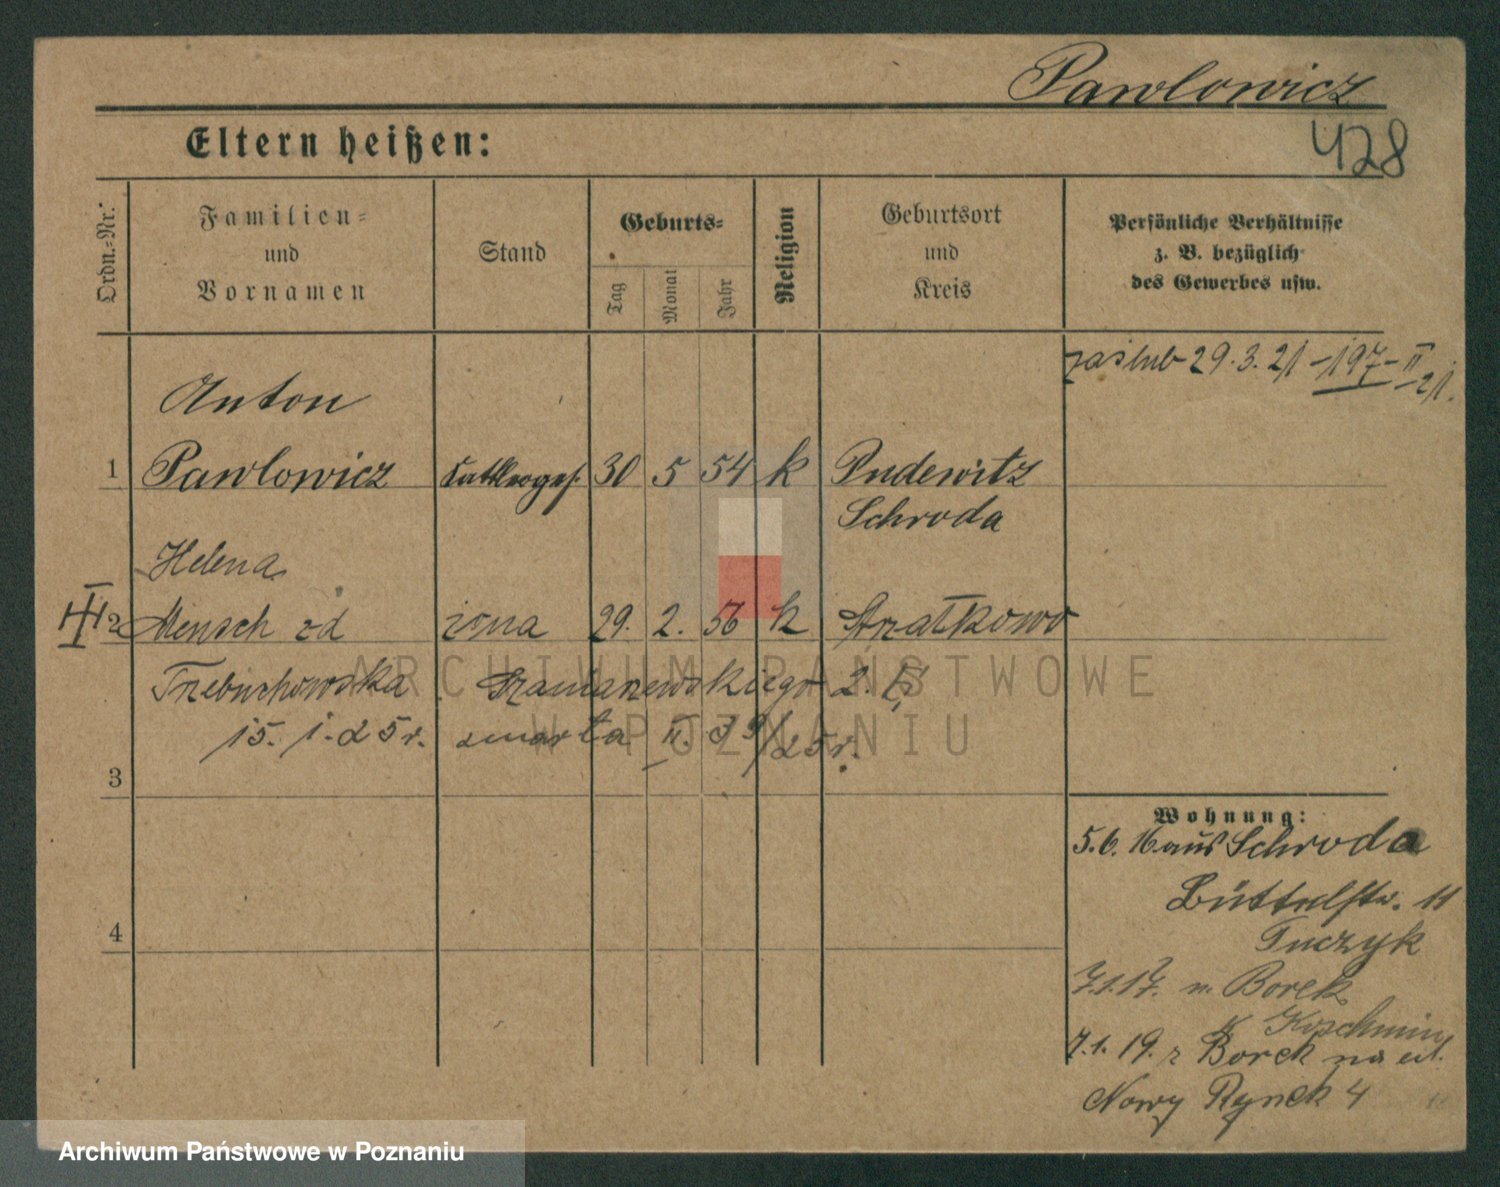 Pawlowicz
428
Eltern heißen:
Ordn.-Nr.
Familien-
und
Vornamen
Stand
Geburts-
Tag
Monat
Jahr
Religion
Geburtsort
und
Kreis
Persönliche Verhältnisse
z. B. bezüglich
des Gewerbes usw.
zaślub 29.3.21 - 197 - II
-21.
Anton
1 Pawlowicz Sattlerges. 30 5 54 k Pudewitz
Schroda
Helena
2 Mensch zd żona 29. 2. 56 k
Trzebuchowska Szamarzewskiego 2.
15. 1. 25 r. zmarła II.
3
Wohnung:
5.6.16 aus Schroda
11
Tuczyk
4
7.1.17. n. Borek
K Koschmin
7.1.19. z Borek na ul.
Nowy Rynek 4
ARCHIWUM PAŃSTWOWE
W POZNANIU
Archiwum Państwowe w Poznaniu